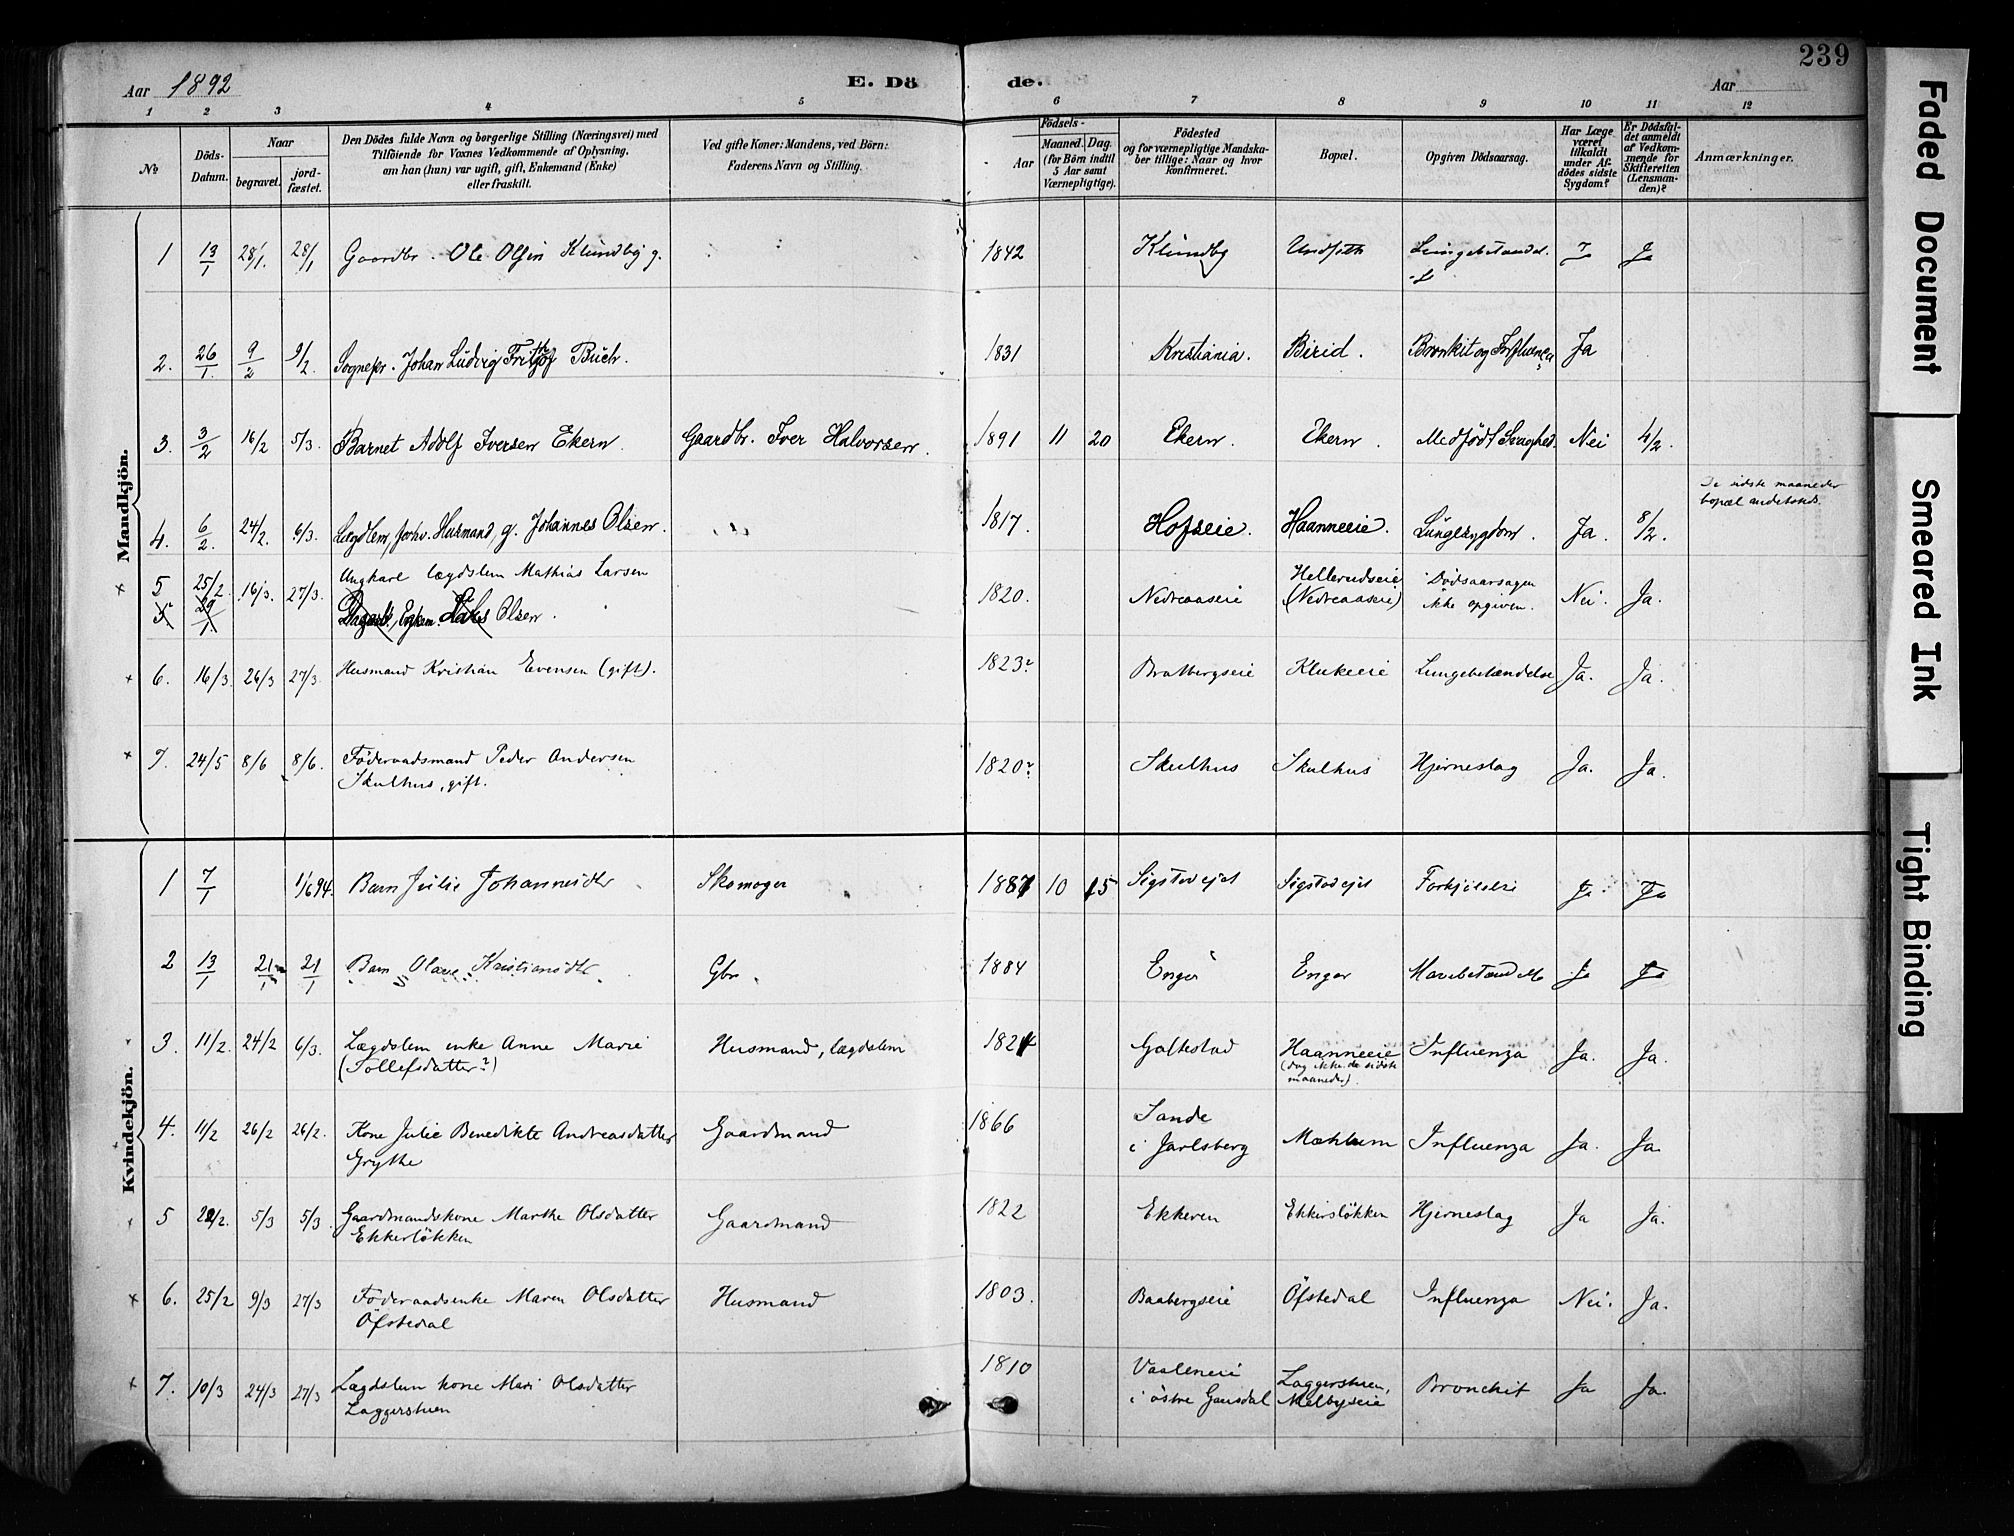 239
Aar 1892
E. Dö de.
Aar
1 2 3 4 5 6 7 8 9 10 11 12
No
Döds-Datum.
Naar
begravet.
jord-fæstet.
Den Dödes fulde Navn og borgerlige Stilling (Næringsvei) med
Tilföiende for Voxnes Vedkommende af Oplysning,
om han (hun) var ugift, gift, Enkemand (Enke)
eller fraskilt.
Ved gifte Koner: Mandens, ved Börn:
Faderens Navn og Stilling.
Födsels-
Aar
Maaned. Dag.
(for Börn indtil
5 Aar samt
Værnepligtige).
Födested
og for værnepligtige Mandska-
ber tillige: Naar og hvor
konfirmeret.
Bopæl.
Opgiven Dödsaarsag.
Har Læge
været
tilkaldt
under Af-
dödes sidste
Sygdom?
Er Dödsfal-
det anmeldt
af Vedkom-
mende for
Skifteretten
(Lensman-
den)?
Anmærkninger.
Mandkjön.
1 13/1 28/1. 28/1 Gaardbr. Ole Olsen Klundby g. 1842 Klundby Ja
2. 26/1. 9/2 9/2. Sognepr. Johan Ludvig Frithjof Buch. 1831 Kristiania. Birid. Bronkit og Influenza Ja
3. 3/2 16/2 5/3. Barnet Adolf Iversen Ekern. Gaardbr. Iver Halvorsen. 1891 11 20 Ekern. Ekern. Medfödt Svaghed. Nei 4/2.
De sidste maaneder
bopæl andetsteds.
4. 6/2. 24/2. 6/3. Lægdlem, forhv. Husmand, g. Johannes Olsen. 1817. Hofseie. Haanneeie. Lungesygdom. Ja. 8/2.
x 5 25/2 16/3. 27/3. Ungkarl lægdslem Mathias Larsen 1820. Nedreaaseie Hellerudseie (Nedreaaseie) Dödsaarsagen ikke opgiven. Nei. Ja.
29/1. Olsen.
x 6. 16/3. 26/3 27/3. Husmand Kristian Evensen (gift). 1823? Bratbergseie Klukeeie Lungebetændelse Ja. Ja.
x 7. 24/5 8/6 8/6. Föderaadsmand Peder Andersen
Skulhus, gift. 1820? Skulhus Skulhus Hjerneslag Ja. Ja.
Kvindekjön.
1 7/1 1/6 94. Barn Julie Johannesdtr Skomager 1887 10 15 Sigstadejet Sigstadejet Forkjölelse Ja Ja
2 13/1 21/1 21/1 Barn Olave Kristiansdtr Gbr. 1884 Enger Enger Mavebetændelse Ja Ja
3. 11/2. 24/2 6/3. Lægdslem enke Anne Marie
(Tollefsdatter?) Husmand, lægdslem 1824 Galtestad Haanneeie
(dog ikke de sidste
maaneder). Influenza Ja. Ja.
4. 11/2 26/2 26/2. Kone Julie Benedikte Andreasdatter
Grythe Gaardmand 1866 Sande
i Jarlsberg Mæhlum Influenza Ja. Ja.
5 22/2. 5/3 5/3. Gaardmandskone Marthe Olsdatter
Ekkerlökken Gaardmand 1822 Ekkeren Ekkerslökken Hjerneslag Ja Ja.
x 6. 25/2 9/3 27/3 Föderaadsenke Maren Olsdatter
Öfstedal Husmand 1803. Baabergseie Öfstedal Influenza Nei. Ja.
x 7. 10/3 24/3 27/3 Lægdslem kone Mari Olsdatter
Laggerstuen 1810 Vaaleneie
i östre Gausdal Laggerstuen,
Melbyseie Bronchit Ja Ja.
Faded Document
Smeared Ink
Tight Binding